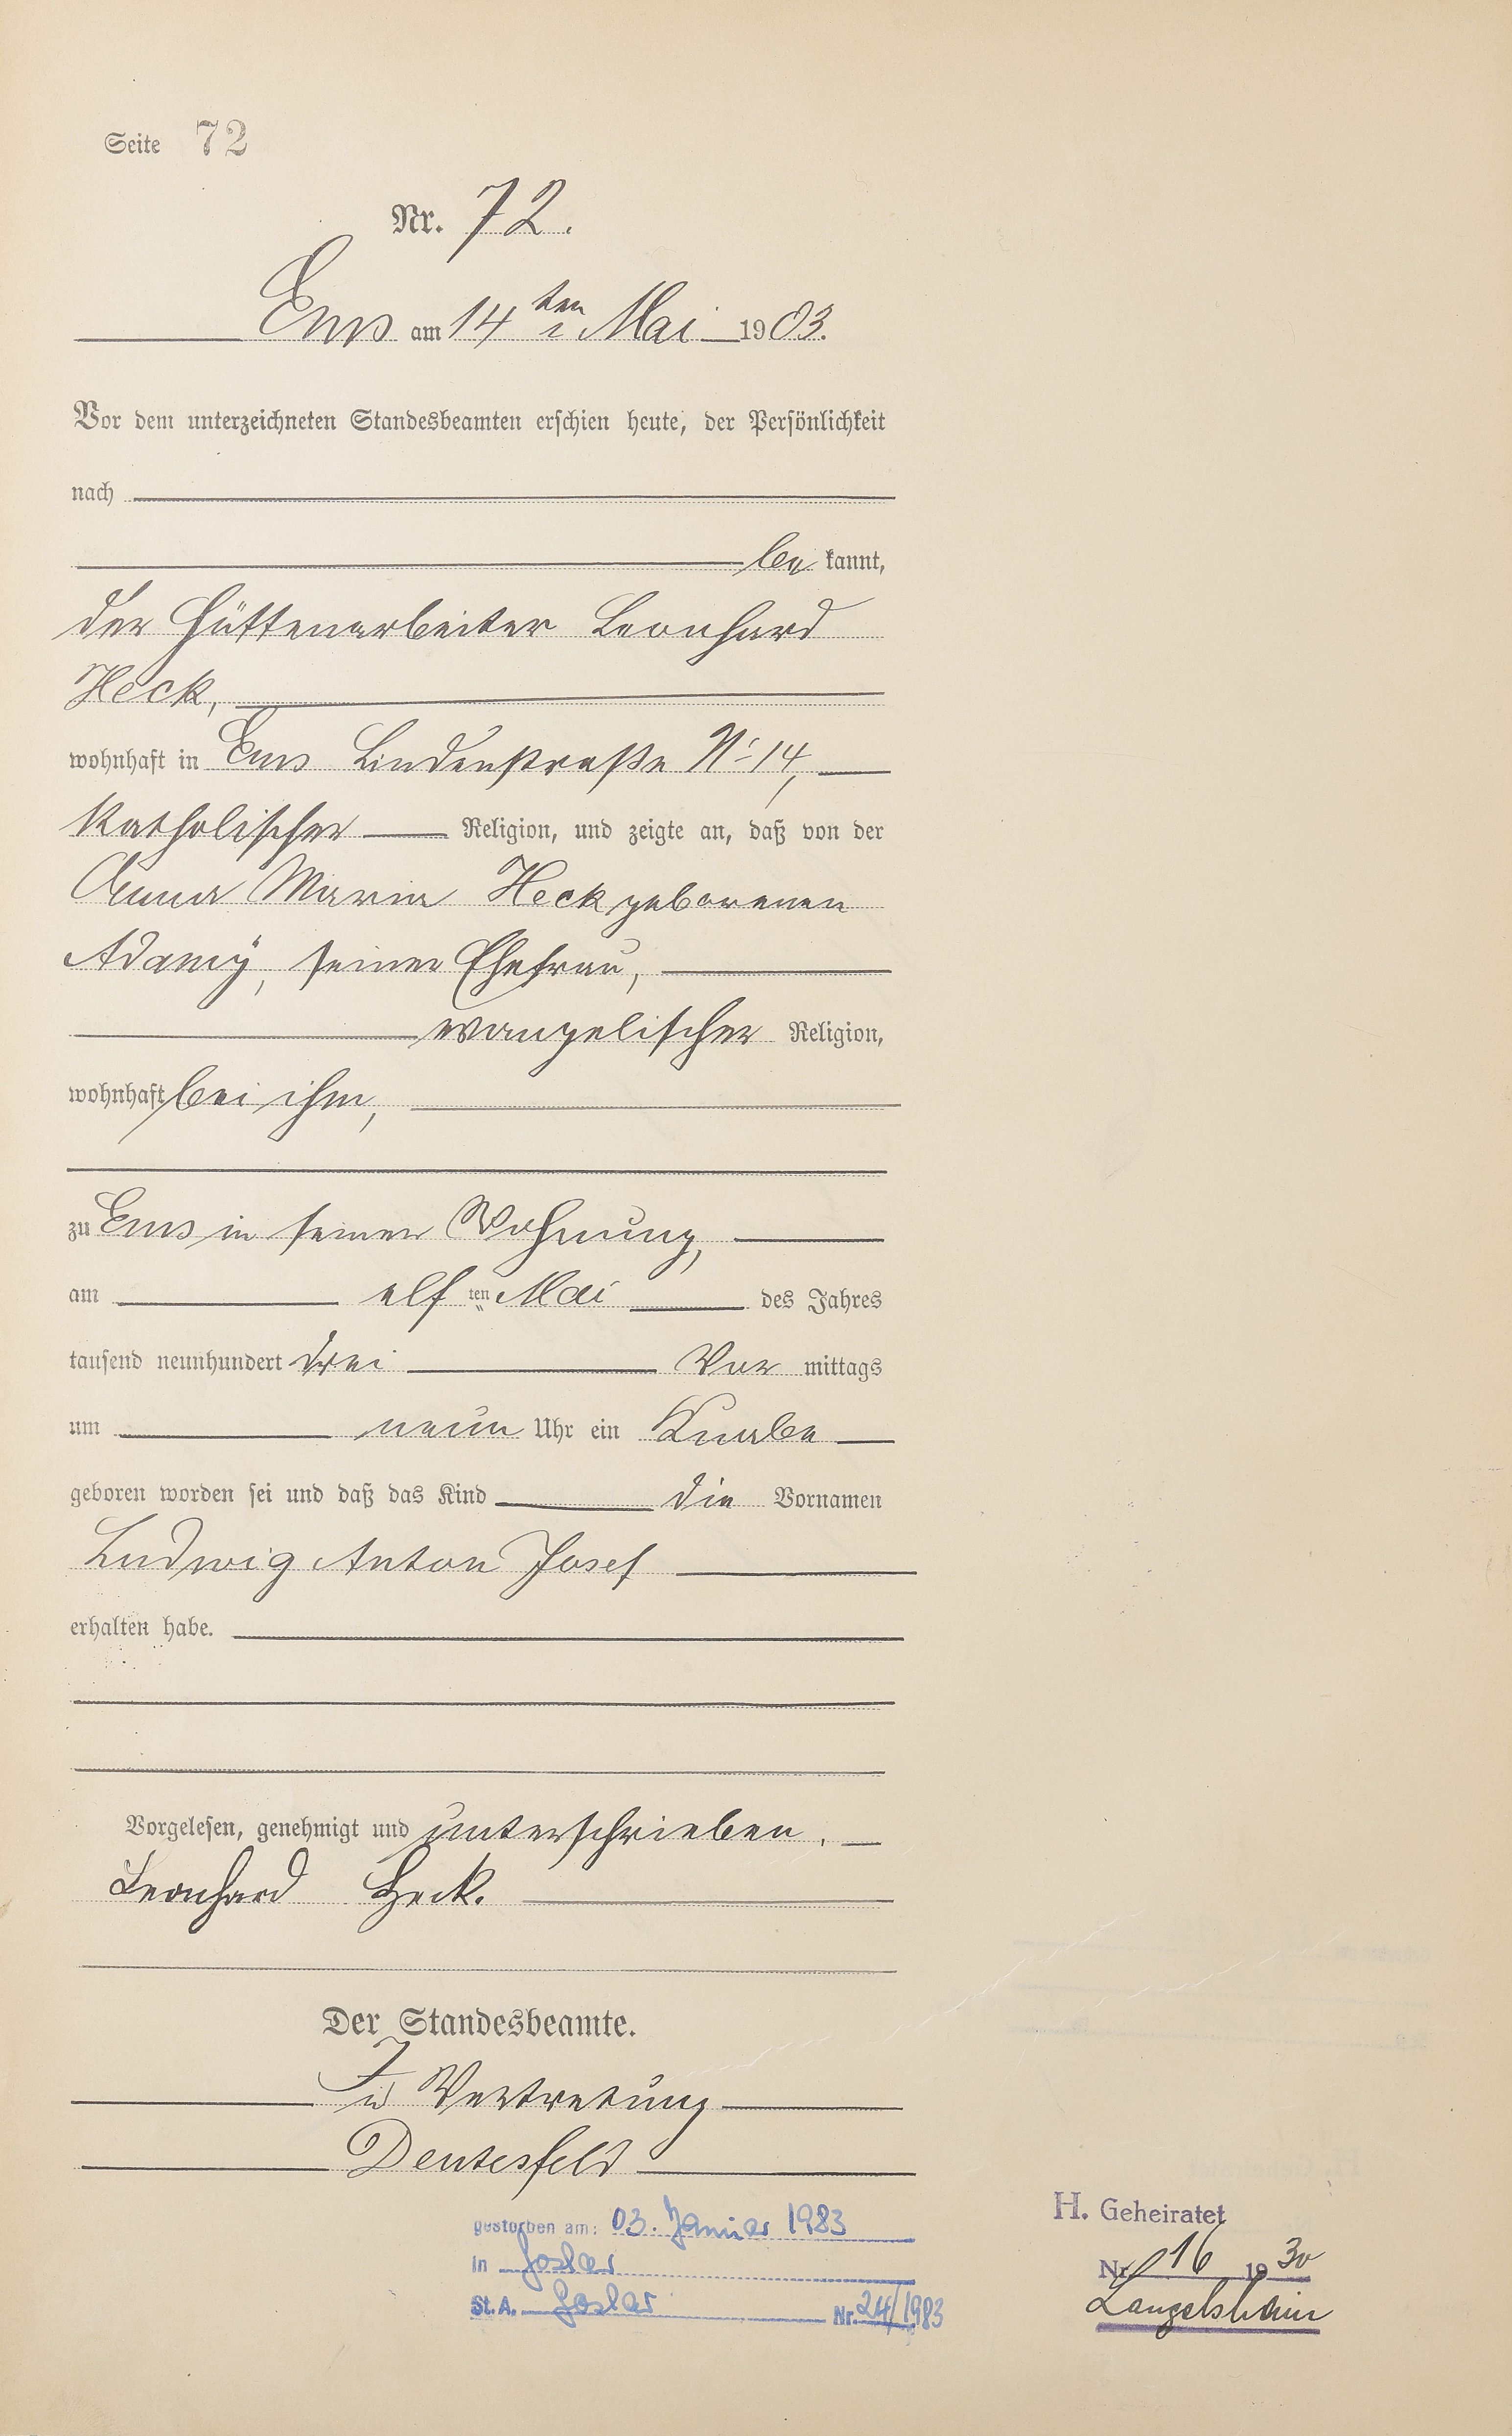 Seite 72
Nr. 72.
Ems am 14ten Mai 1903.
Vor dem unterzeichneten Standesbeamten erschien heute, der Persönlichkeit
nach
be kannt,
der Hüttenarbeiter Leonhard
Heck,
wohnhaft in Ems Lindenstraße No 14,
katholischer Religion, und zeigte an, daß von der
Anna Maria Heck geborenen
Adamÿ, seiner Ehefrau,
evangelischer Religion,
wohnhaft bei ihm,
zu Ems in seiner Wohnung,
am elf ten Mai des Jahres
tausend neunhundert drei Vor mittags
um neun Uhr ein Knabe
geboren worden sei und daß das Kind die Vornamen
Ludwig Anton Josef
erhalten habe.
Vorgelesen, genehmigt und unterschrieben.
Leonhard Heck.
Der Standesbeamte.
In Vertretung
Deutesfeld
gestorben am: 03. Januar 1983
in Goslar
St.A. Goslar Nr. 24/1983
H. Geheiratet
Nr. 16 1930
Langelsheim